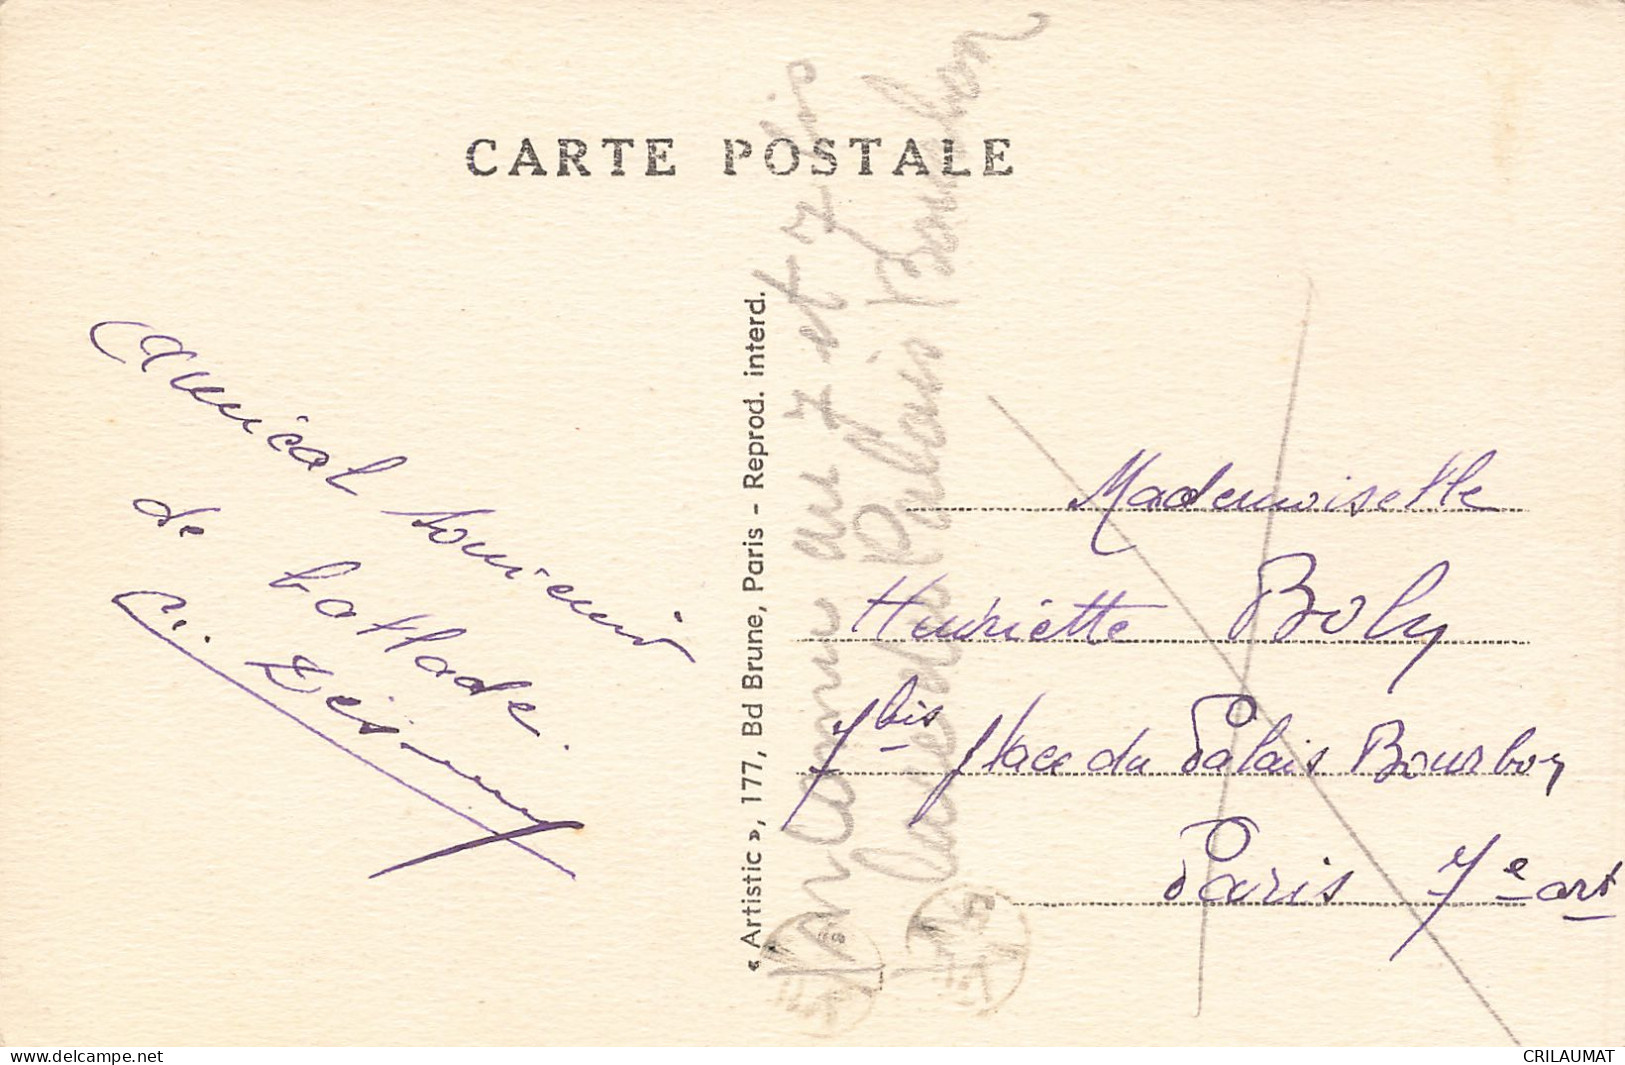 CARTE POSTALE
amical souvenir
de
« Artistic », 177, Bd Brune, Paris – Reprod. interd.
Inconnu au 7 et 7 bis
Palais Bourbon
Mademoiselle
Henriette Boly
7 bis place du Palais Bourbon
Paris 7e arrt
www.delcampe.net
CRILAUMAT